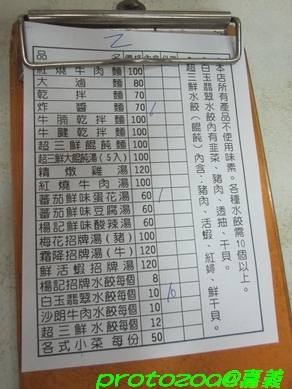 乙
品 名
紅燒牛肉麵 100
大滷麵 80
乾拌麵 70
炸醬麵 70 /
牛腩乾拌麵 100
牛腱乾拌麵 100
超三鮮餛飩麵 100
超三鮮大餛飩湯(5入) 100
精燉雞湯 120
紅燒牛肉湯 100
蕃茄鮮味蛋花湯 60 /
蕃茄鮮味豆腐湯 60
楊記鮮味酸辣湯 60
梅花招牌湯(豬) 100
霜降招牌湯(牛) 120
鮮活蝦招牌湯 120
楊記招牌水餃每個 8
白玉翡翠水餃每個 10 10
沙朗牛肉水餃每個 10
超三鮮水餃每個 12
各式小菜 每份 50
本店所有產品不使用味素。各種水餃需10個以上。
白玉翡翠水餃內有韭菜、豬肉、透抽、干貝。
超三鮮水餃(餛飩)內含:豬肉、活蝦、紅蟳、鮮干貝。
protozoa@嘉義